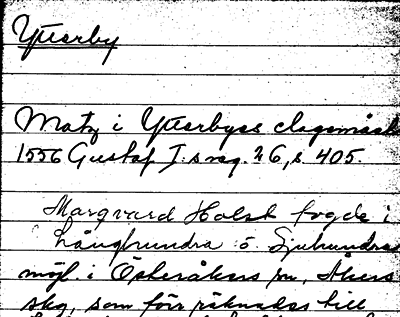 Ytterby
Matz i Ytterbyss
1556 Gustaf I:s reg. 26, s. 405.
Marqvard Holst fogde i
Långhundra o. Sjuhundra
möjl. i Österåkers sn, Åkers
skg, som förr räknades till